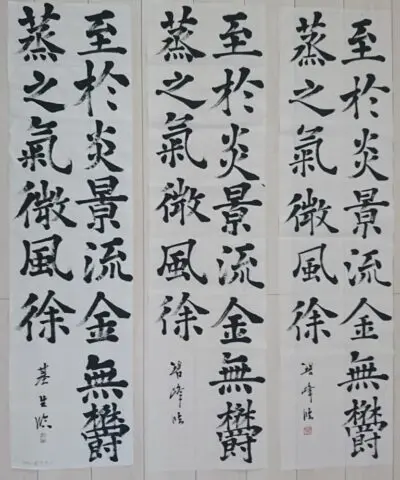 至於炎景流金無欝
蒸之氣微風徐
至於炎景流金無欝
蒸之氣微風徐
至於炎景流金無欝
蒸之氣微風徐